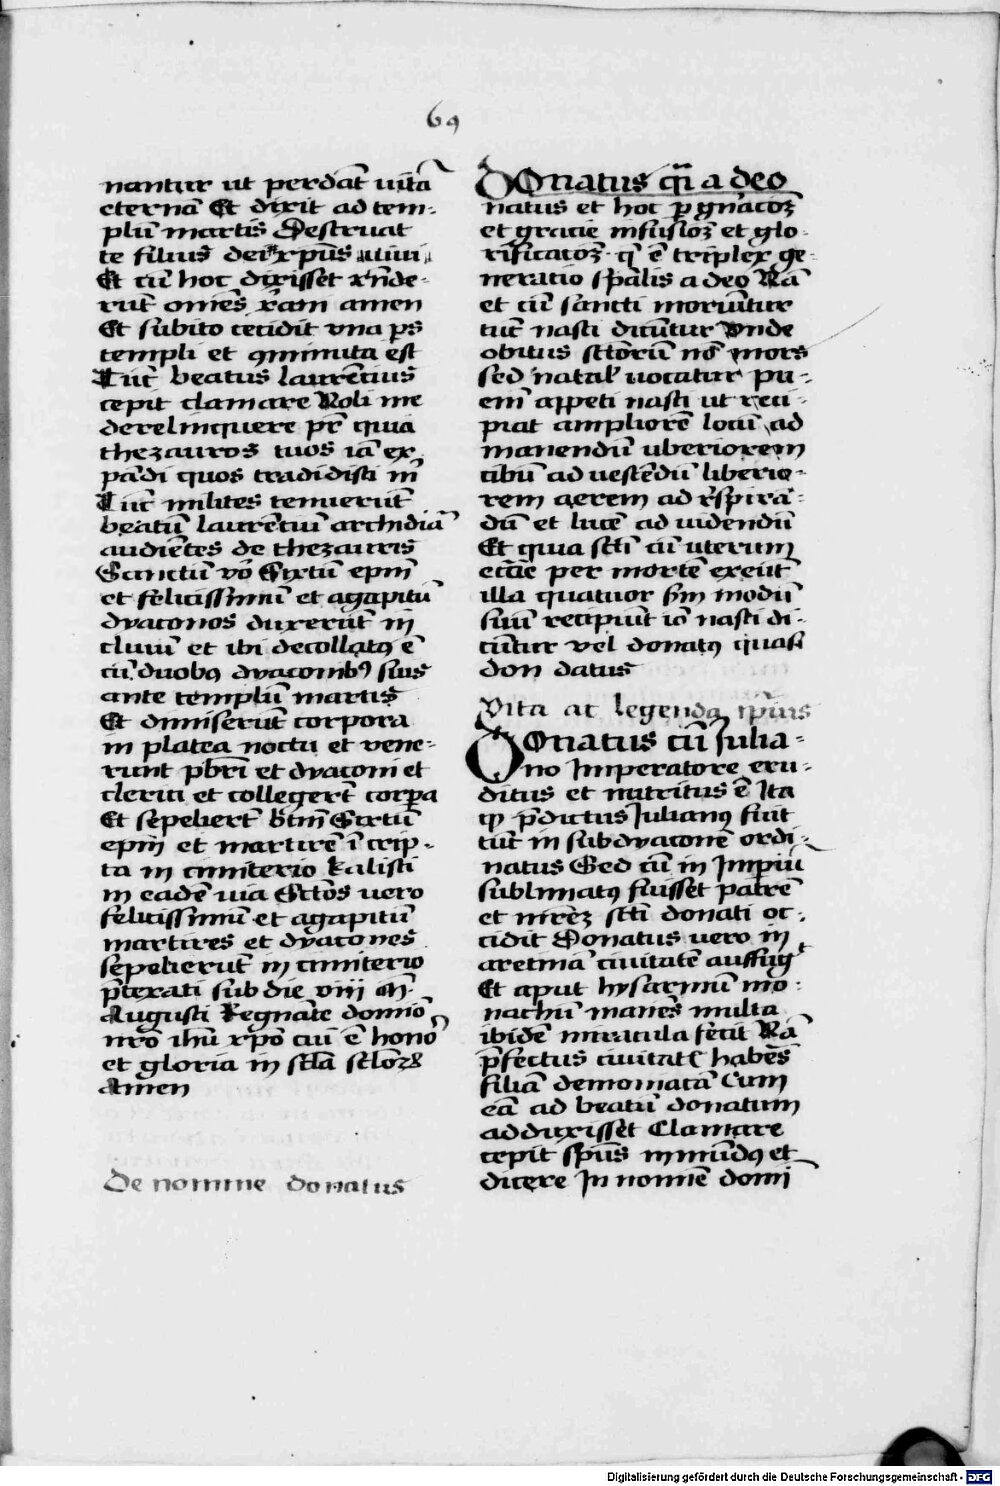 69
nantur ut perdat̄ uitā
eternā Et dixit ad tem-
plū martis Destruat
te filius dei xp̄us uiui
Et cū hoc dixisset rn̄de-
rūt om̄es xr̄ani amen
Et subito cecidit vna ps̄
templi et 9minuta est
Tūc beatus laurēcius
cepit clamare Noli me
derelinquere pr̄ quia
thezauros tuos iā ex
pādi quos tradidisti m̄
Tūc milites tenuerūt
beatū laurēciū archidiā
audiētes de thezauris
Sanctū vō Sixtū epm̄
et felicissimū et agapitū
dyaconos duxerūt in
cliuū et ibi decollatꝰ ē
cū duobꝰ dyaconibꝰ suis
ante templū martis
Et dimiserūt corpora
in platea noctu et vene-
runt pbr̄i et dyaconi et
clerici et collegert̄ corpa
Et sepeliert̄ btm̄ Sixtū
epm̄ et martirē ī crip-
ta in cimiterio kalisti
in eadē uia Sctōs uero
felicissimū et agapitū
martires et dyacones
sepelierūt in cimiterio
p̄textati sub die viii
Augusti Regnāte domīo
nrō ihū xpō cui ē honō
et gloria in scl̄a scl̄oꝝ
Amen
De nomine donatus
DOnatus qͣi a deo
natus et hoc p gn̄acōꝫ
et gracie infusiōꝫ et glo-
rificacōꝫ qͣ ē triplex ge-
neratio spūalis a deo Nā
et cū sancti moriūtur
tūc nasci dicūtur Unde
obitus sctōrū nō mors
sed natal' uocatur pu-
em̄ appeti nasci ut reci-
piat ampliorē locū ad
manendū uberiorem
cibū ad uescēdū liberio-
rem aerem ad r̄spirā-
dū et lucē ad uidendū
Et quia scti cū uterum
eccīe per mortē exeūt
illa quatuor sm̄ modū
suū recipiūt iō nasci di-
cūtur vel donatꝰ quasi
don datus
Vita ac legenda ipīus
DOnatus cū Julia-
no Imperatore eru-
ditus et nutritus ē Ita
qꝫ p̄dictus Julianꝰ fuit
tūc in subdyaconē ordi-
natus Sed cū in Imperiū
sublimatꝰ fuisset patrē
et mr̄eꝫ scti donati oc-
cidit Donatus vero in
aretinā ciuitatē auffugͭ
Et aput hysarmū mo-
nachū manēs multa
ibidē miracula fecit Nā
p̄fectus ciuitatꝭ habēs
filiā demoniacā Cum
eā ad beatū donatum
adduxisset Clamare
cepit spūs immūdꝰ et
dicere In nomīe domi
Digitalisierung gefördert durch die Deutsche Forschungsgemeinschaft - DFG